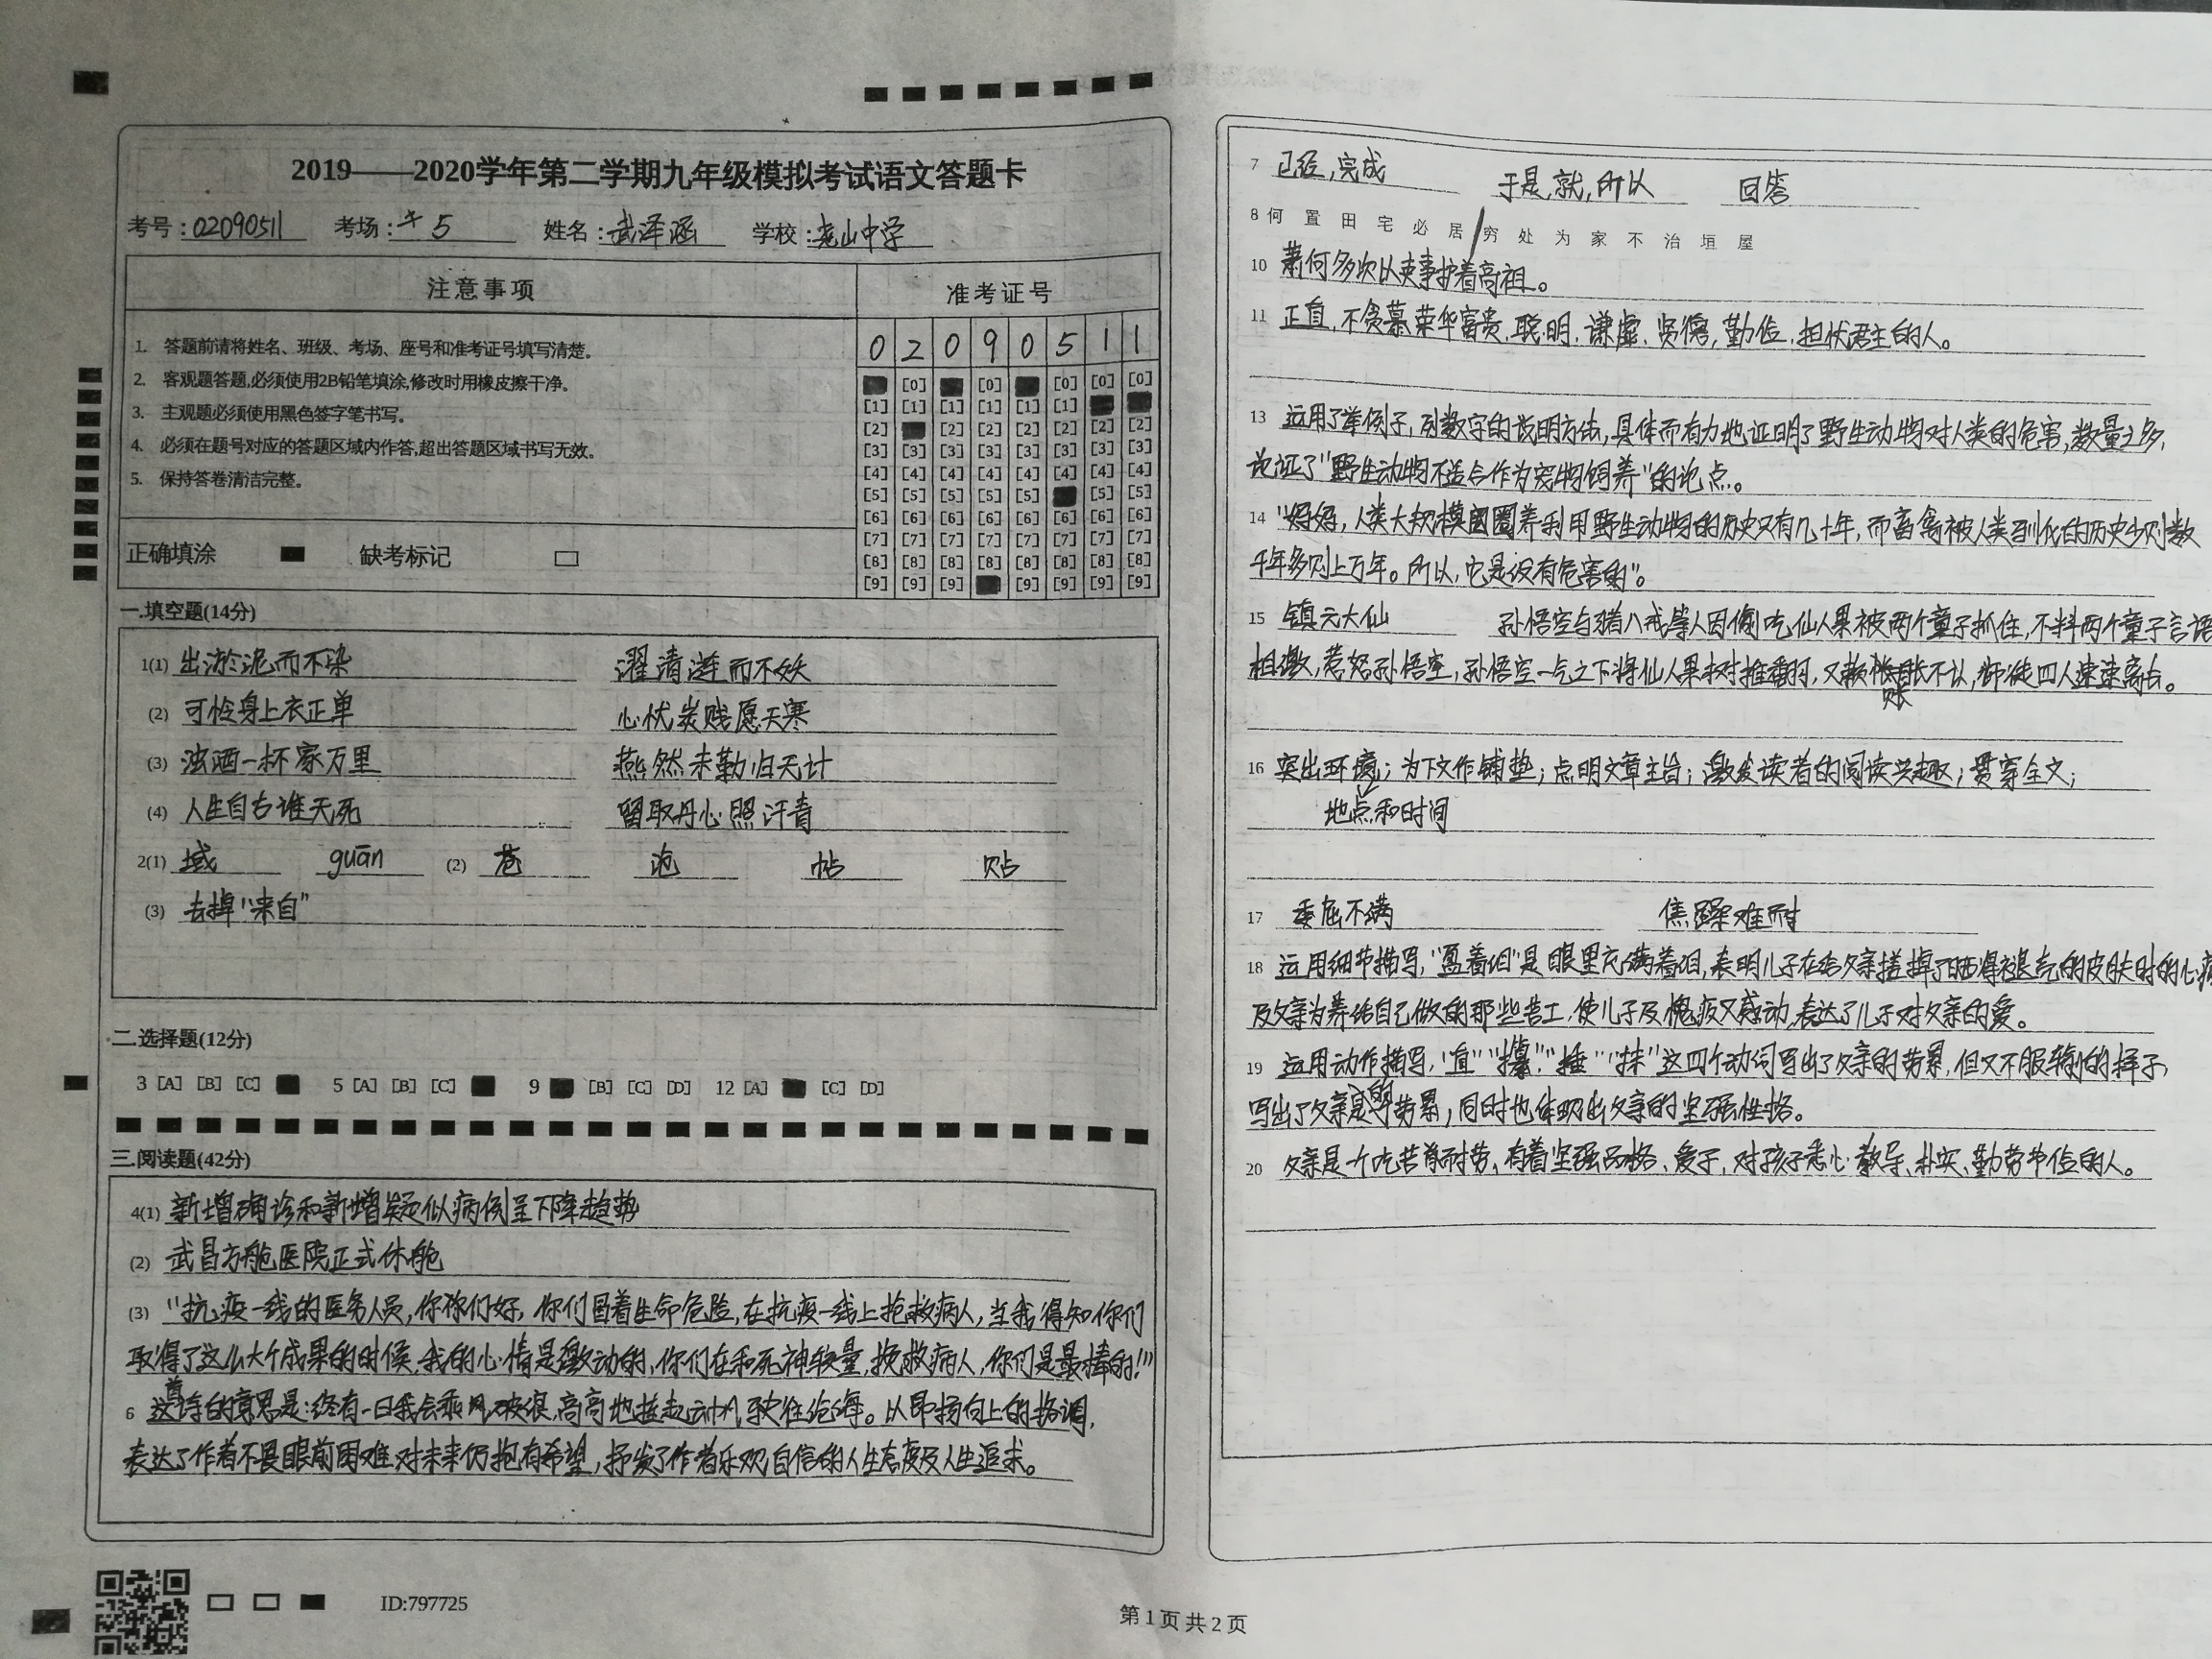 2019——2020学年第二学期九年级模拟考试语文答题卡
考号:02090511 考场: 5 姓名:武泽涵 学校:尧山中学
注意事项 准考证号
0 2 0 9 0 5 1 1
1. 答题前请将姓名、班级、考场、座号和准考证号填写清楚。
2. 客观题答题,必须使用2B铅笔填涂,修改时用橡皮擦干净。
3. 主观题必须使用黑色签字笔书写。
4. 必须在题号对应的答题区域内作答,超出答题区域书写无效。
5. 保持答卷清洁完整。
[0] [0] [0] [0] [0]
[1] [1] [1] [1] [1] [1]
[2] [2] [2] [2] [2] [2] [2]
[3] [3] [3] [3] [3] [3] [3] [3]
[4] [4] [4] [4] [4] [4] [4] [4]
[5] [5] [5] [5] [5] [5] [5]
[6] [6] [6] [6] [6] [6] [6] [6]
[7] [7] [7] [7] [7] [7] [7] [7]
[8] [8] [8] [8] [8] [8] [8] [8]
[9] [9] [9] [9] [9] [9] [9]
正确填涂 缺考标记
一.填空题(14分)
1(1) 出淤泥而不染 濯清涟而不妖
(2) 可怜身上衣正单 心忧炭贱愿天寒
(3) 浊酒一杯家万里 燕然未勒归无计
(4) 人生自古谁无死 留取丹心照汗青
2(1) 域 guān (2) 苍 沧 帖 贴
(3) 去掉“来自”
二.选择题(12分)
3 [A] [B] [C] 5 [A] [B] [C] 9 [B] [C] [D] 12 [A] [C] [D]
三.阅读题(42分)
4(1) 新增确诊和新增疑似病例呈下降趋势
(2) 武昌方舱医院正式休舱
(3) “抗疫一线的医务人员,你你们好,你们冒着生命危险,在抗疫一线上抢救病人,当我得知你们
取得了这么大个成果的时候,我的心情是激动的,你们在和死神较量,挽救病人,你们是最棒的!”
6 这首诗的意思是:终有一日我会乘风破浪,高高地挂起云帆驶往沧海。以昂扬向上的格调,
表达了作者不畏眼前困难对未来仍抱有希望,抒发了作者乐观自信的人生态度及人生追求。
ID:797725
第1页共2页
7 已经,完成 于是,就,所以 回答
8 何 置 田 宅 必 居/穷 处 为 家 不 治 垣 屋
10 萧何多次以吏事护着高祖。
11 正直,不贪慕荣华富贵,聪明,谦虚,贤德,勤俭,担忧君主的人。
13 运用了举例子,列数字的说明方法,具体而有力地证明了野生动物对人类的危害,数量之多,
论证了“野生动物不适合作为宠物饲养”的论点。
14 “妈妈,人类大规模圈养利用野生动物的历史只有几十年,而畜禽被人类驯化的历史少则数
千年多则上万年。所以,它是没有危害的”。
15 镇元大仙 孙悟空与猪八戒等人因偷吃仙人果被两个童子抓住,不料两个童子言语
相激,惹怒孙悟空,孙悟空一气之下将仙人果树推翻,又赖账不认,师徒四人速速离去。
16 突出环境;为下文作铺垫;点明文章主旨;激发读者的阅读兴趣;贯穿全文;
地点和时间
17 委屈不满 焦躁难耐
18 运用细节描写,“盈着泪”是眼里充满着泪,表明儿子在给父亲搓掉了晒得褪色的皮肤时的心疼
及父亲为养给自己做的那些苦工,使儿子及愧疚又感动,表达了儿子对父亲的爱。
19 运用动作描写,“直”“攥”“捶”“抹”这四个动词写出了父亲的劳累,但又不服输的样子,
写出了父亲的劳累,同时也体现出父亲的坚强性格。
20 父亲是一个吃苦耐劳、有着坚强品格、爱子,对孩子悉心教导、朴实、勤劳节俭的人。